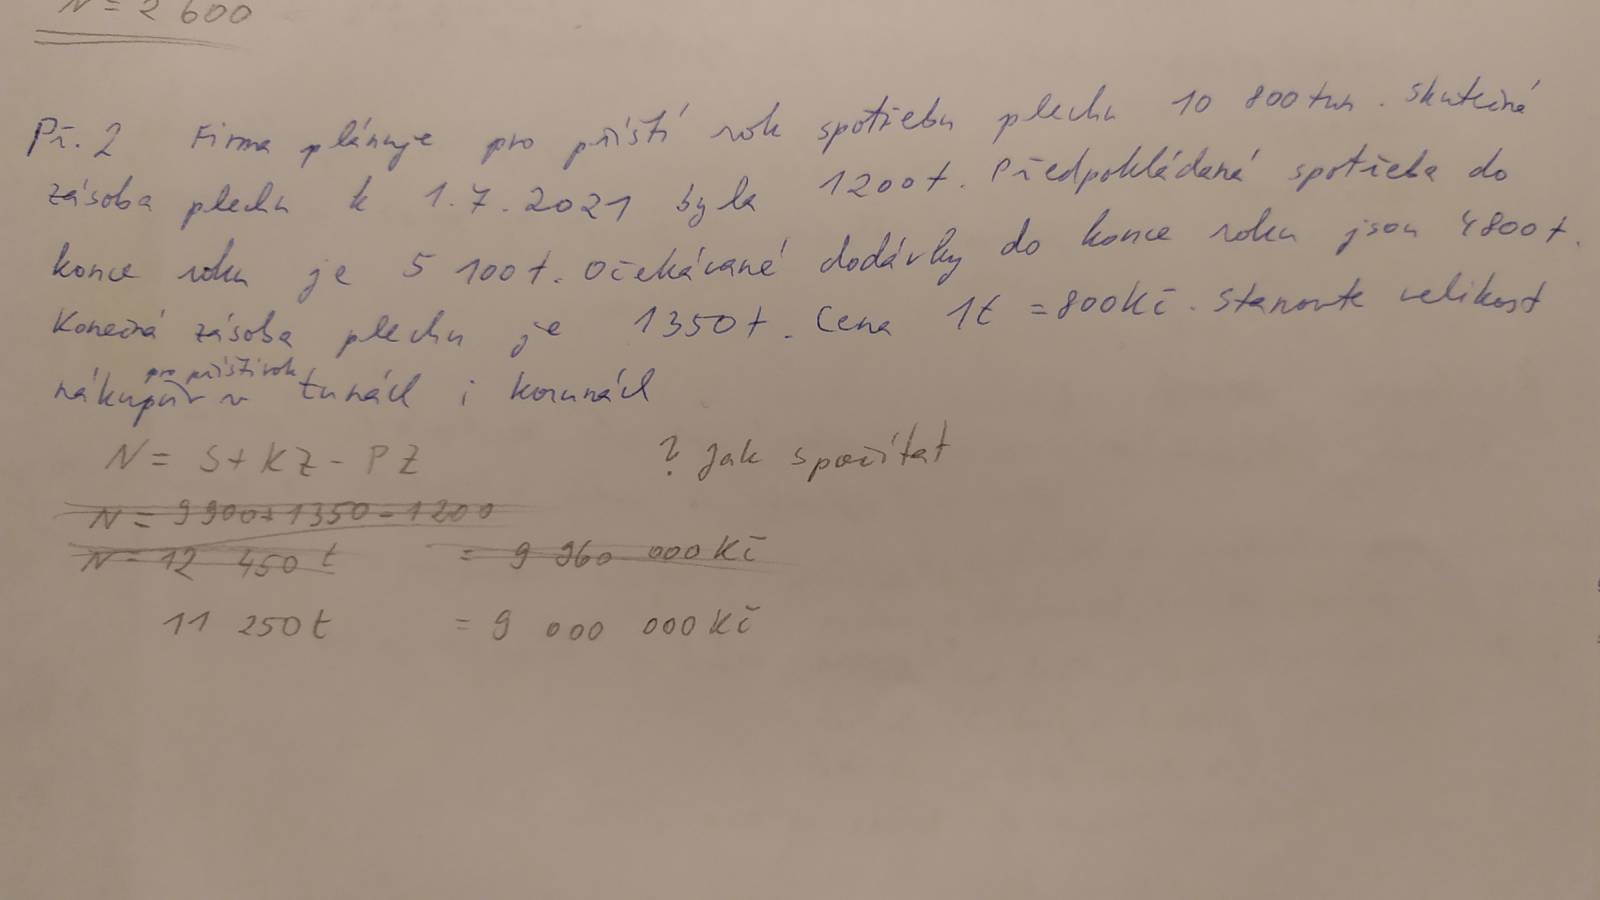 N = 2 600
Př. 2 Firma plánuje pro příští rok spotřebu plechu 10 800 tun. Skutečná
zásoba plechu k 1.7.2021 byla 1200t. Předpokládaná spotřeba do
konce roku je 5 100t. Očekávané dodávky do konce roku jsou 4800t.
Konečná zásoba plechu je 1350t. Cena 1t = 800Kč. Stanovte velikost
pro příští rok
nákupu v tunách i korunách
N = S + KZ - PZ ? Jak spočítat
N = 9 900 + 1350 - 1200
N = 12 450 t = 9 960 000 Kč
11 250t = 9 000 000 Kč